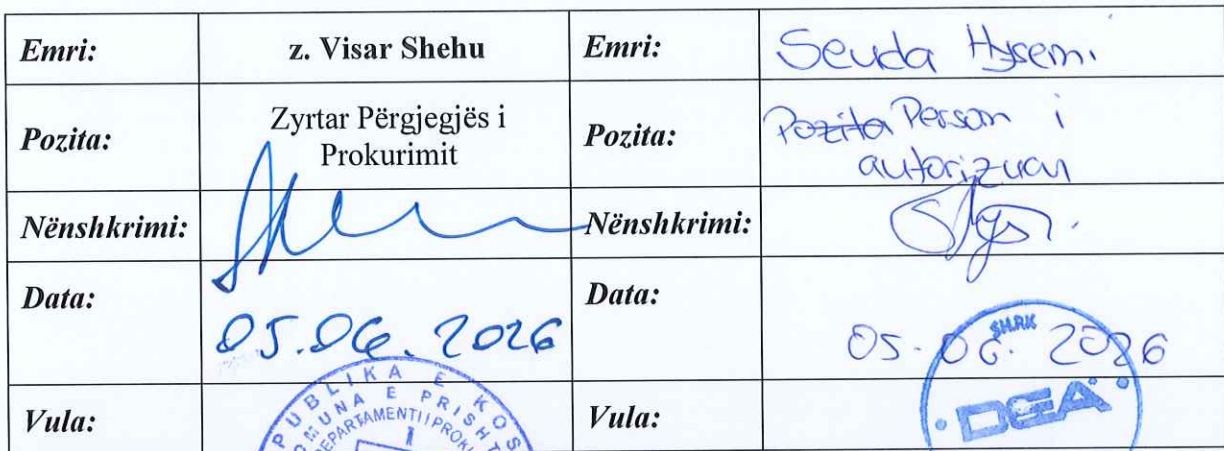 Emri: z. Visar Shehu Emri: Seuda Hysemi
Pozita: Zyrtar Përgjegjës i Prokurimit Pozita: Pozita Person i autorizuar
Nënshkrimi: Nënshkrimi:
Data: 05.06.2026 Data: 05.06.2026
Vula: Vula:
PUBLIKA E KOS
MUNA E PRISHT
DEPARTAMENTI I PROKU
SH.P.K
DEA